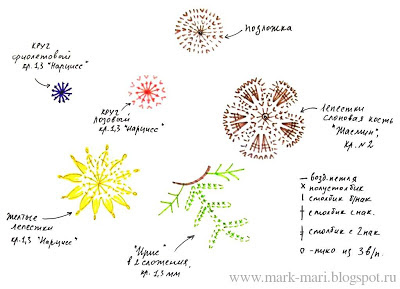 подложка
круг
фиолетовый
кр. 1,3 "Нарцисс"
круг
розовый
кр. 1,3 "Нарцисс"
лепестки
слоновая кость
"Жасмин",
кр. N2
желтые
лепестки
кр. 1,3 "Нарцисс"
"Ирис"
в 2 сложения,
кр. 1,3 мм
— возд. петля
x полустолбик
столбик б/нак.
столбик с нак.
столбик с 2 нак
- пико из 3 в/п.
www.mark-mari.blogspot.ru